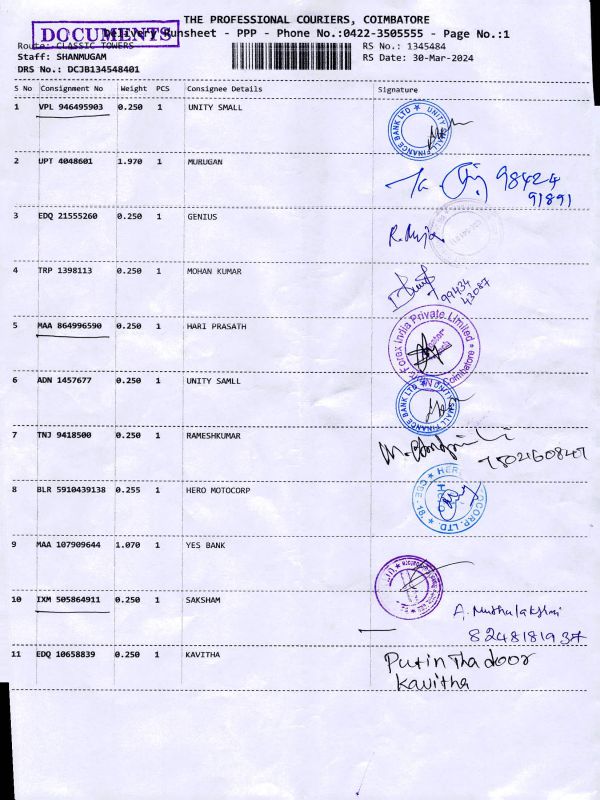 THE PROFESSIONAL COURIERS, COIMBATORE
DOCUMENTS
Delivery Runsheet - PPP - Phone No.:0422-3505555 - Page No.:1
Route: CLASSIC TOWERS RS No.: 1345484
Staff: SHANMUGAM RS Date: 30-Mar-2024
DRS No.: DCJB134548401
S No Consignment No Weight PCS Consignee Details Signature
1 VPL 946495903 0.250 1 UNITY SMALL
UNITY SMALL FINANCE BANK LTD
2 UPT 4048601 1.970 1 MURUGAN
98424
91891
3 EDQ 21555260 0.250 1 GENIUS
4 TRP 1398113 0.250 1 MOHAN KUMAR
99434
43087
5 MAA 864996590 0.250 1 HARI PRASATH
Forex India Private Limited
Coimbatore
6 ADN 1457677 0.250 1 UNITY SAMLL
UNITY SMALL FINANCE BANK LTD
7 TNJ 9418500 0.250 1 RAMESHKUMAR
8 BLR 5910439138 0.255 1 HERO MOTOCORP
HERO
CORP. LTD.
CBE - 18.
9 MAA 107909644 1.070 1 YES BANK
10 IXM 505864911 0.250 1 SAKSHAM
A. Muthulakshmi
8248181937
11 EDQ 10658839 0.250 1 KAVITHA
Put in Tha door
Kavitha